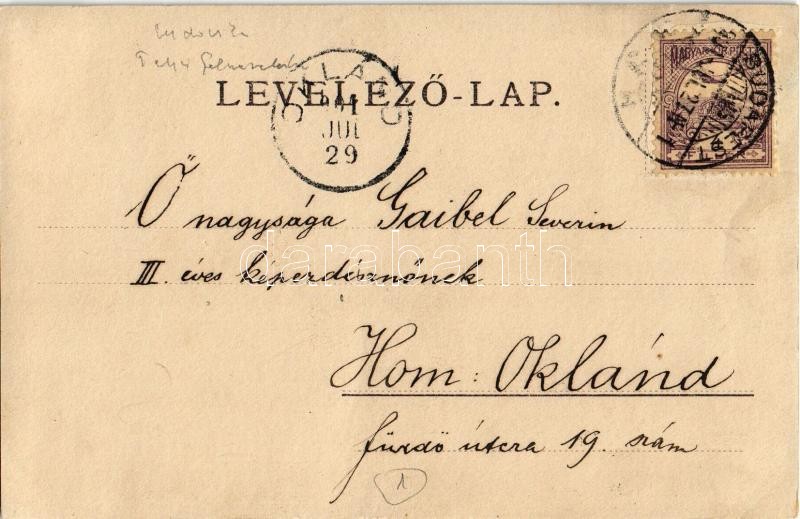 LEVELEZŐ-LAP.
OKLÁND
JUL
29
MAGYAR KIR. POSTA
BUDAPEST
Ő nagysága Gaibel Severin
III. éves képezdésznőnek
Hom: Oklánd
fürdő útcza 19. szám
1
darabanth